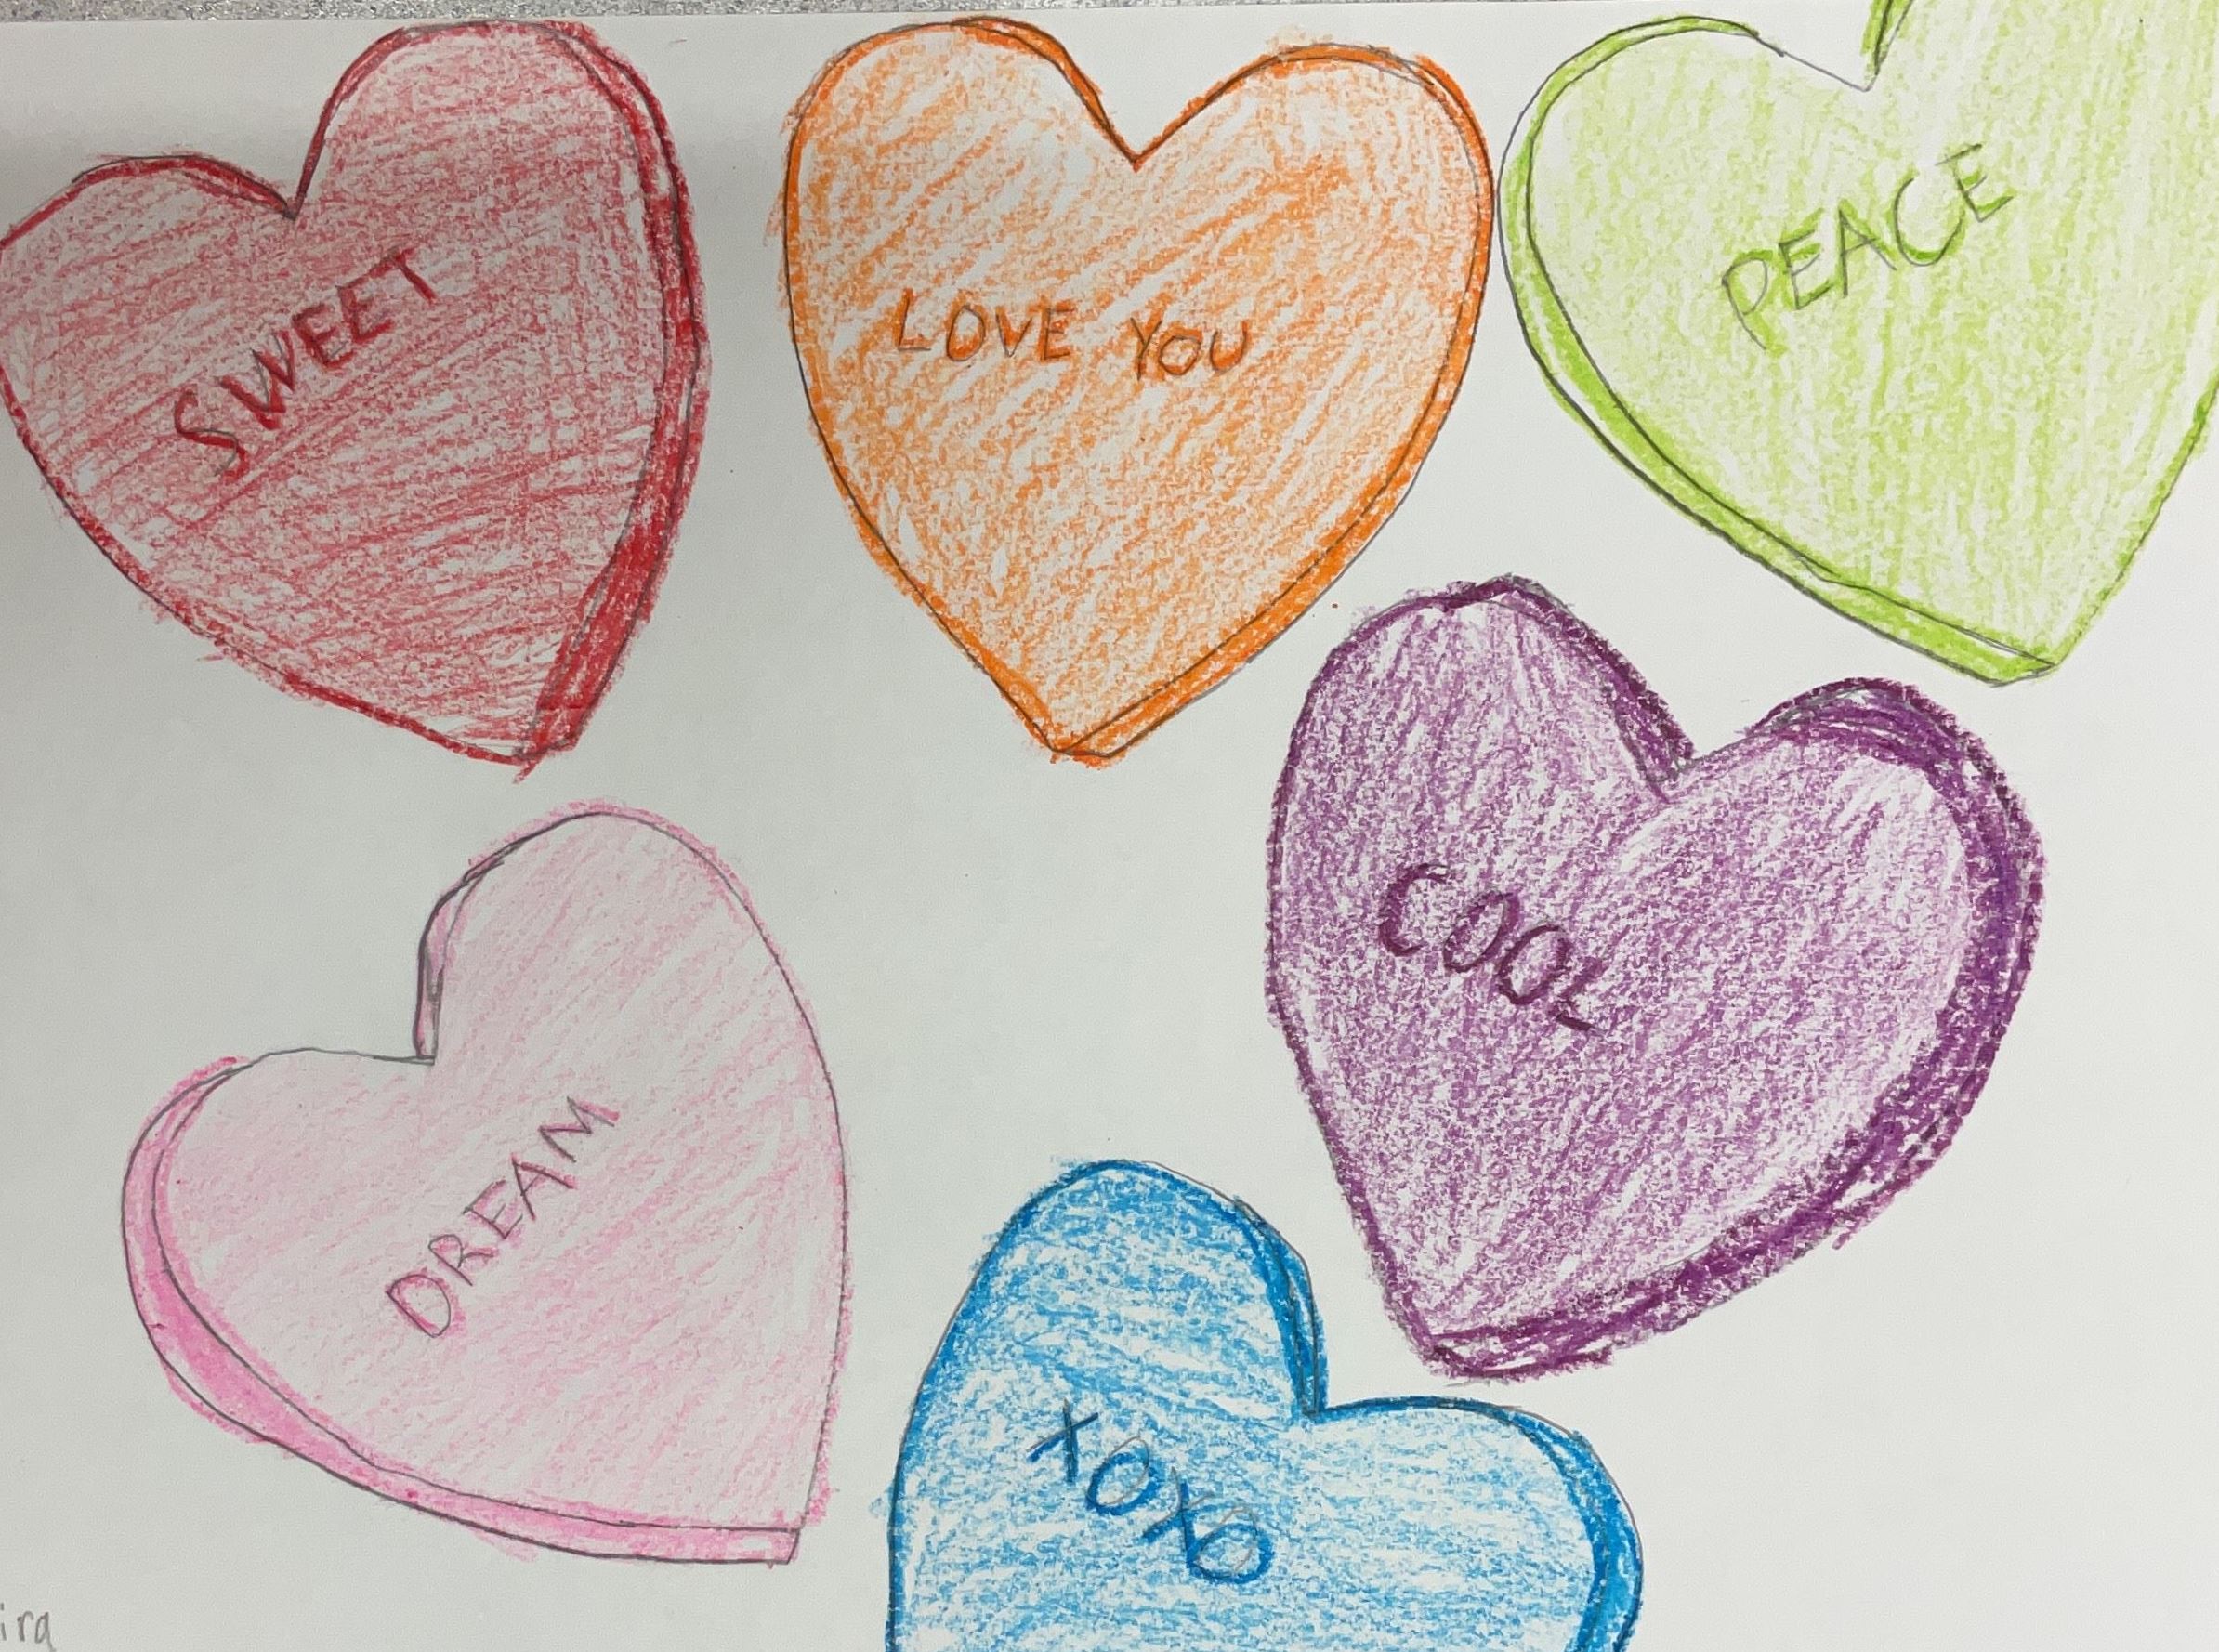 SWEET
LOVE YOU
PEACE
COOL
DREAM
XOXO